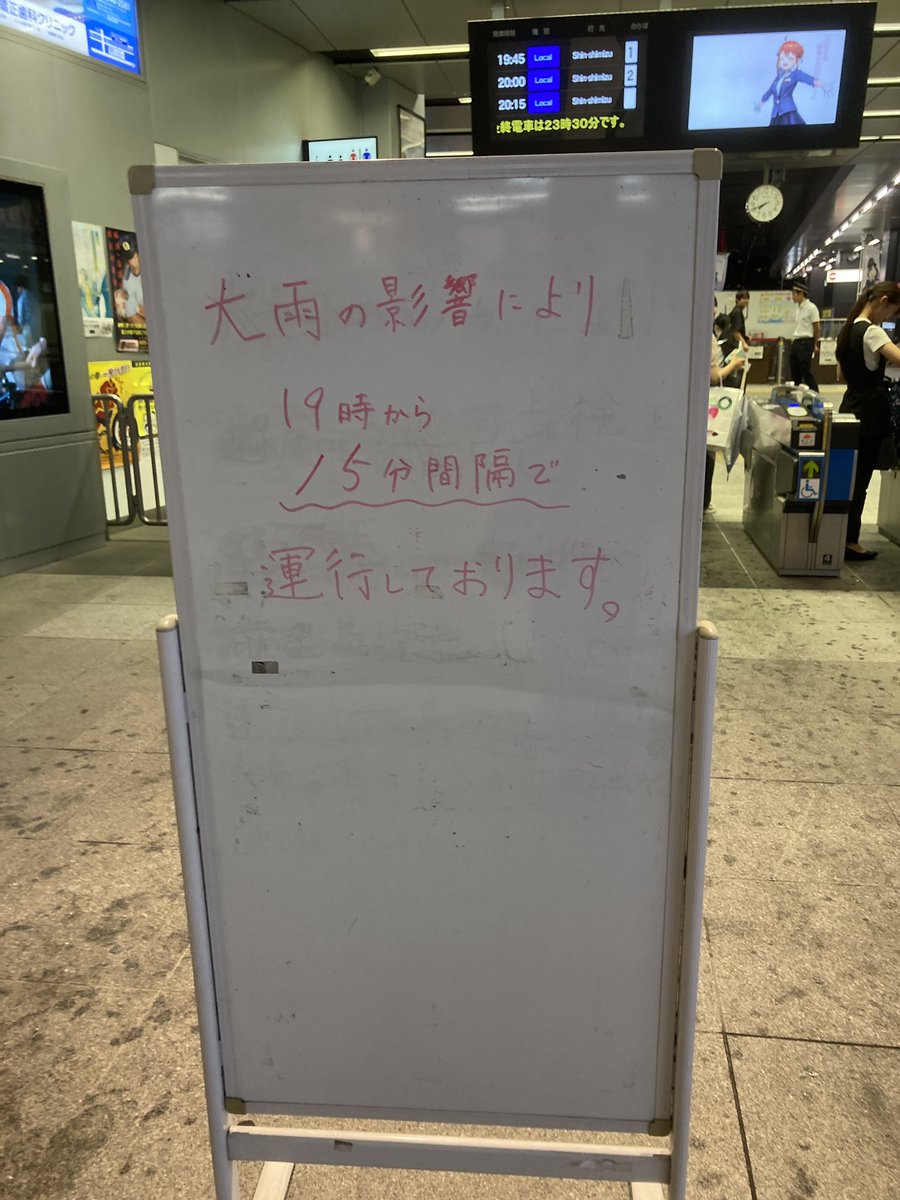 矯正歯科クリニック
発車時刻 種別 行先 のりば
19:45 Local Shin-shimizu 1
20:00 Local Shin-shimizu 2
20:15 Local Shin-shimizu
終電車は23時30分です。
大雨の影響により
19時から
15分間隔で
運行しております。